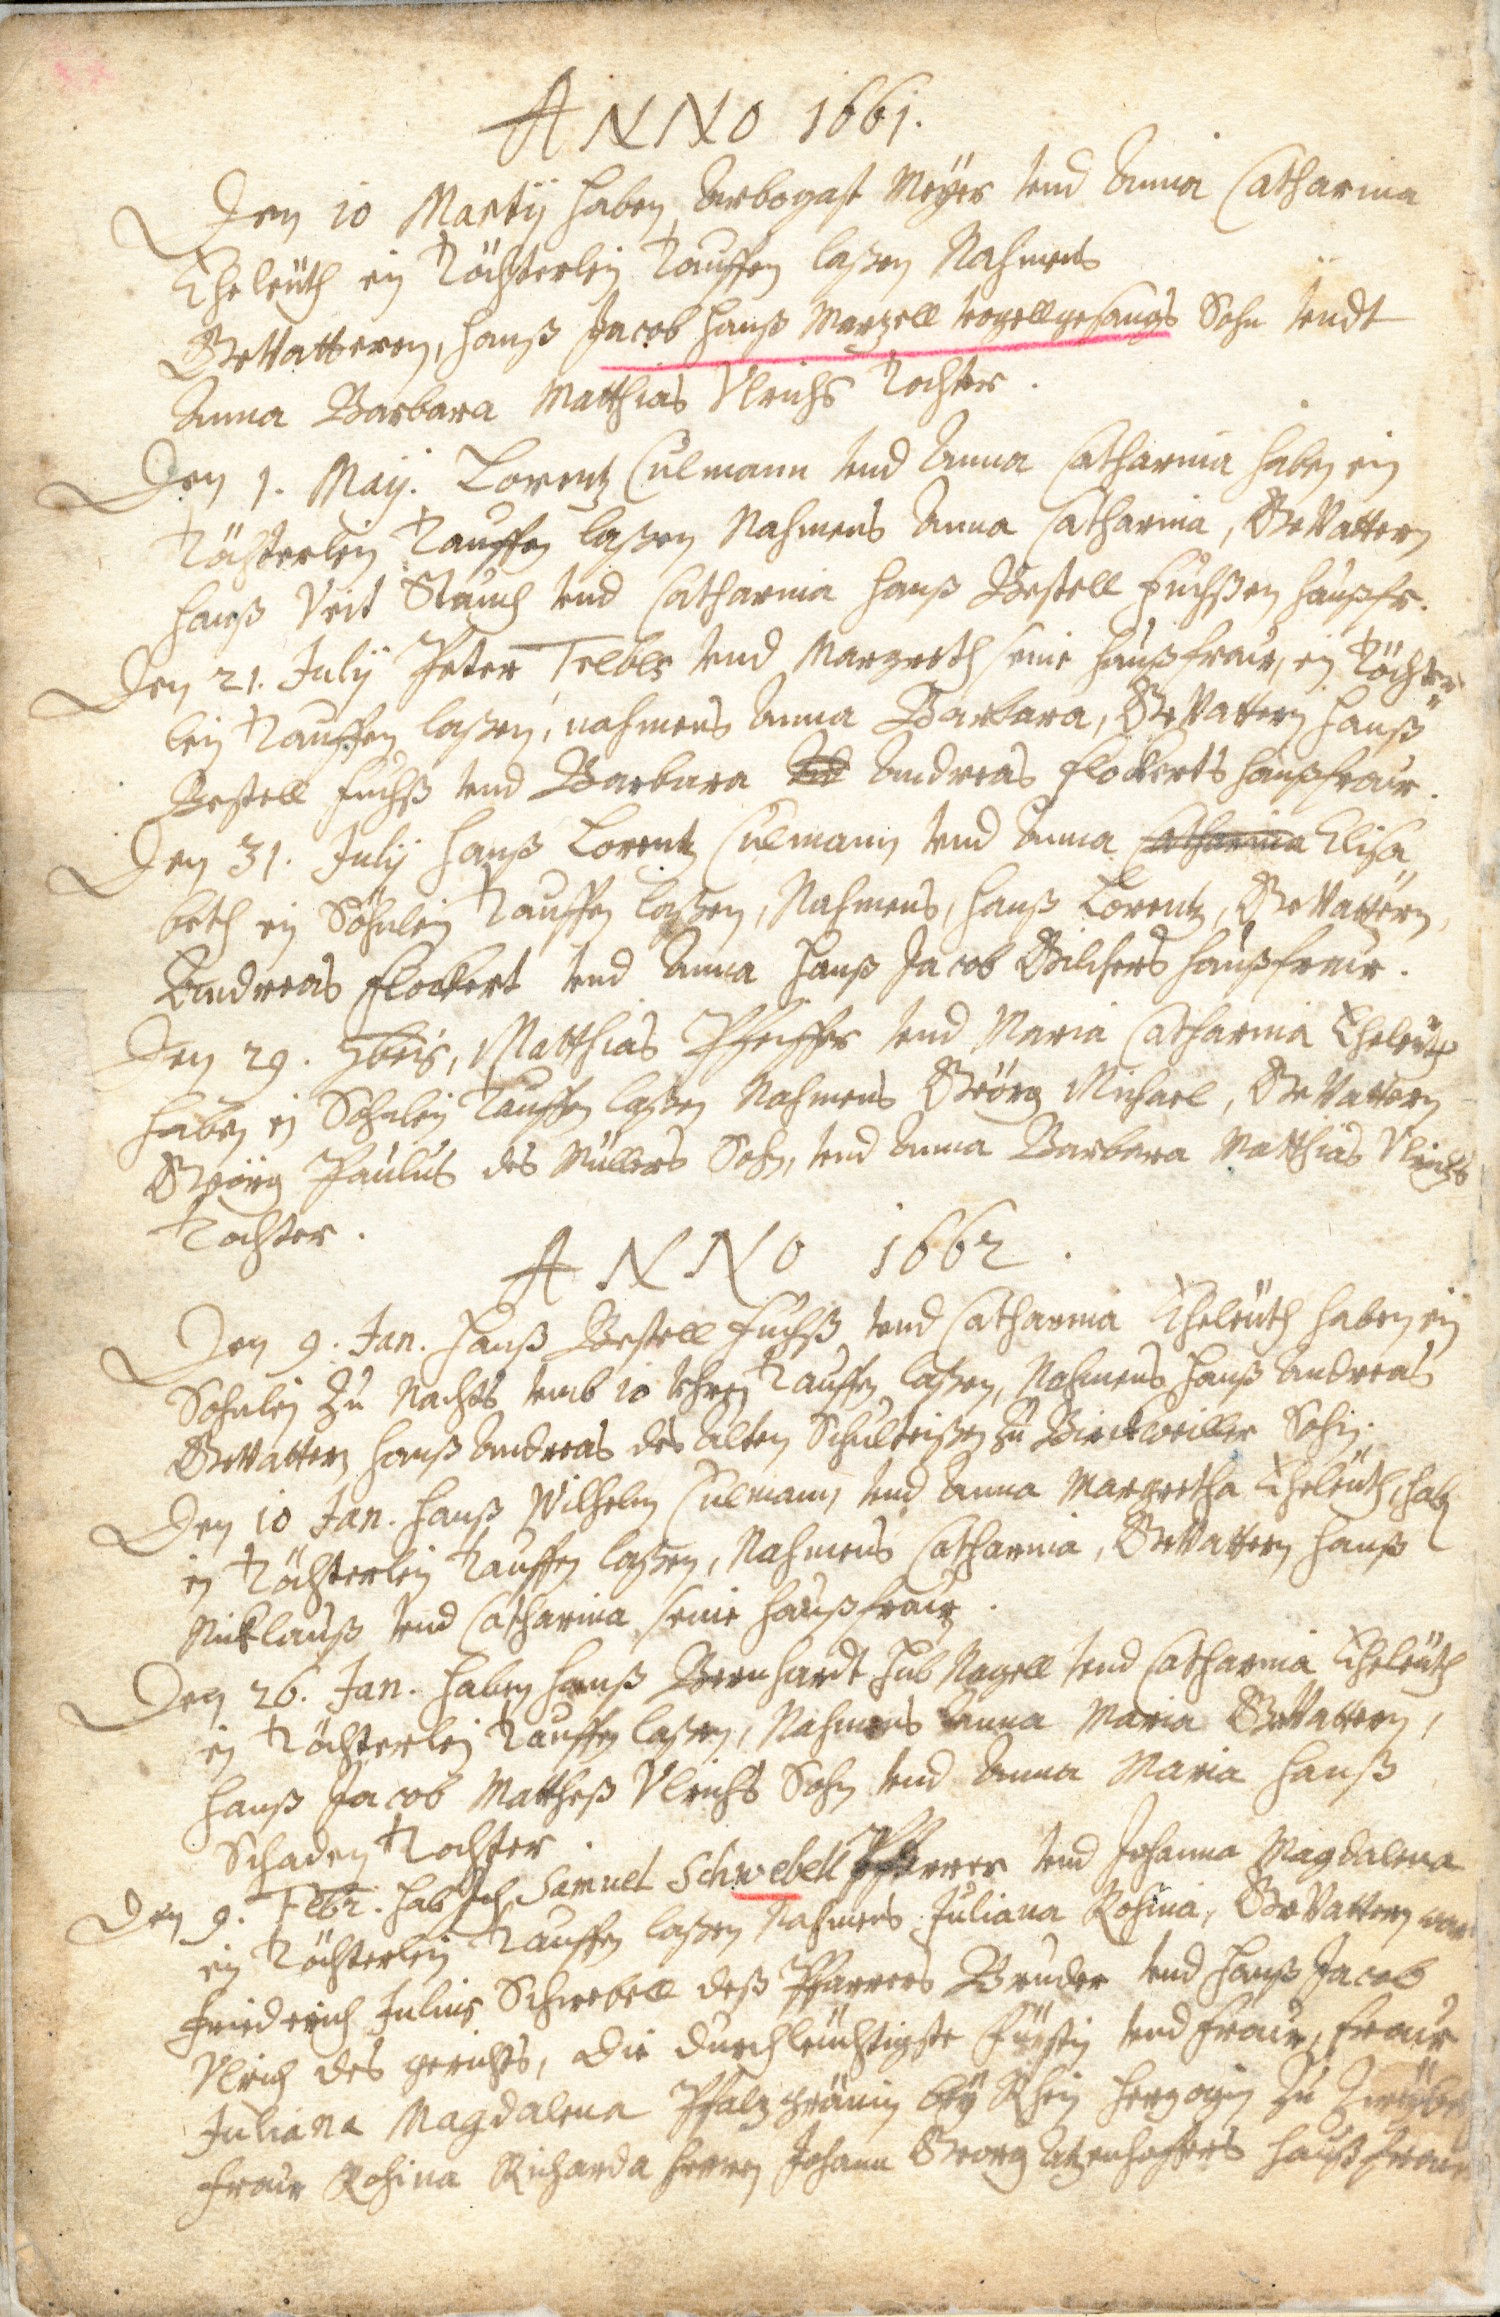 ANNO 1661.
Den 10 Martij haben Arbogast Meÿer vnd Anna Catharina
Eheleüth ein Töchterlein Tauffen laßen Nahmens
GeVatteren, Hanß Jacob Hanß Marzell vogellgesangs Sohn vndt
Anna Barbara Matthias Vlrichs Tochter.
Den 1. Maij. Lorentz Culmann vnd Anna Catharina haben ein
Töchterlein Tauffen laßen Nahmens Anna Catharina, GeVattern
Hanß Veit Stauch vnd Catharina Hanß Bestell Fuchßen haußfr.
Den 21. Julij Peter vnd Margreth seine haußfraw, ein Töchter
lein Tauffen laßen, nahmens Anna Barbara, GeVattern Hanß
Bestell Fuchß vnd Barbara Andreas Flockerts haußfraw.
Den 31. Julij Hanß Lorentz Culmann vnd Anna Catharina Elisa
beth ein Söhnlein Tauffen laßen, Nahmens, Hanß Lorentz, GeVattern,
Andreas Flockert vnd Anna Hanß Jacob Gilchers haußfraw.
Den 29. 7bris, Matthias Pfeiffer vnd Maria Catharina Eheleüth
haben ein Söhnlein Tauffen laßen Nahmens Geörg Michael, GeVattern
Geörg Paulus des Müllers Sohn, vnd Anna Barbara Matthias Vlrichs
Tochter.
ANNO 1662.
Den 9. Jan. Hanß Bestell Fuchß vnd Catharina Eheleüth haben ein
Söhnlein zu Nachts vmb 10 vhren Tauffen laßen, Nahmens Hanß Andreas
GeVattern Hanß Andreas des Alten Schulteißen zu Birckweiller Sohn.
Den 10 Jan. Hanß Wilhelm Culmann vnd Anna Margretha Eheleüth, haben
ein Töchterlein Tauffen laßen, Nahmens Catharina, GeVattern Hanß
Nicklauß vnd Catharina seine haußfraw.
Den 26. Jan. haben Hanß Bernhardt Hub Nagell vnd Catharina Eheleüth
ein Töchterlein Tauffen laßen, Nahmens Anna Maria GeVattern,
Hanß Jacob Mattheß Vlrichs Sohn vnd Anna Maria Hanß
Schaden Tochter.
Den 9. Febr. hab Ich Samuel Schwebell Pfarrer vnd Johanna Magdalena
ein Töchterlein Tauffen laßen Nahmens Juliana Rosina, GeVattern war
Friederich Julius Schwebell deß Pfarrers Bruder vnd Hanß Jacob
Vlrich des gerichts, Die Durchleuchtigste Fürstin vnd fraw, fraw
Juliana Magdalena Pfalzgräuin beÿ Rhein Herzogin zu
fraw Rosina Richarda Herren Johann Georg haußfraw